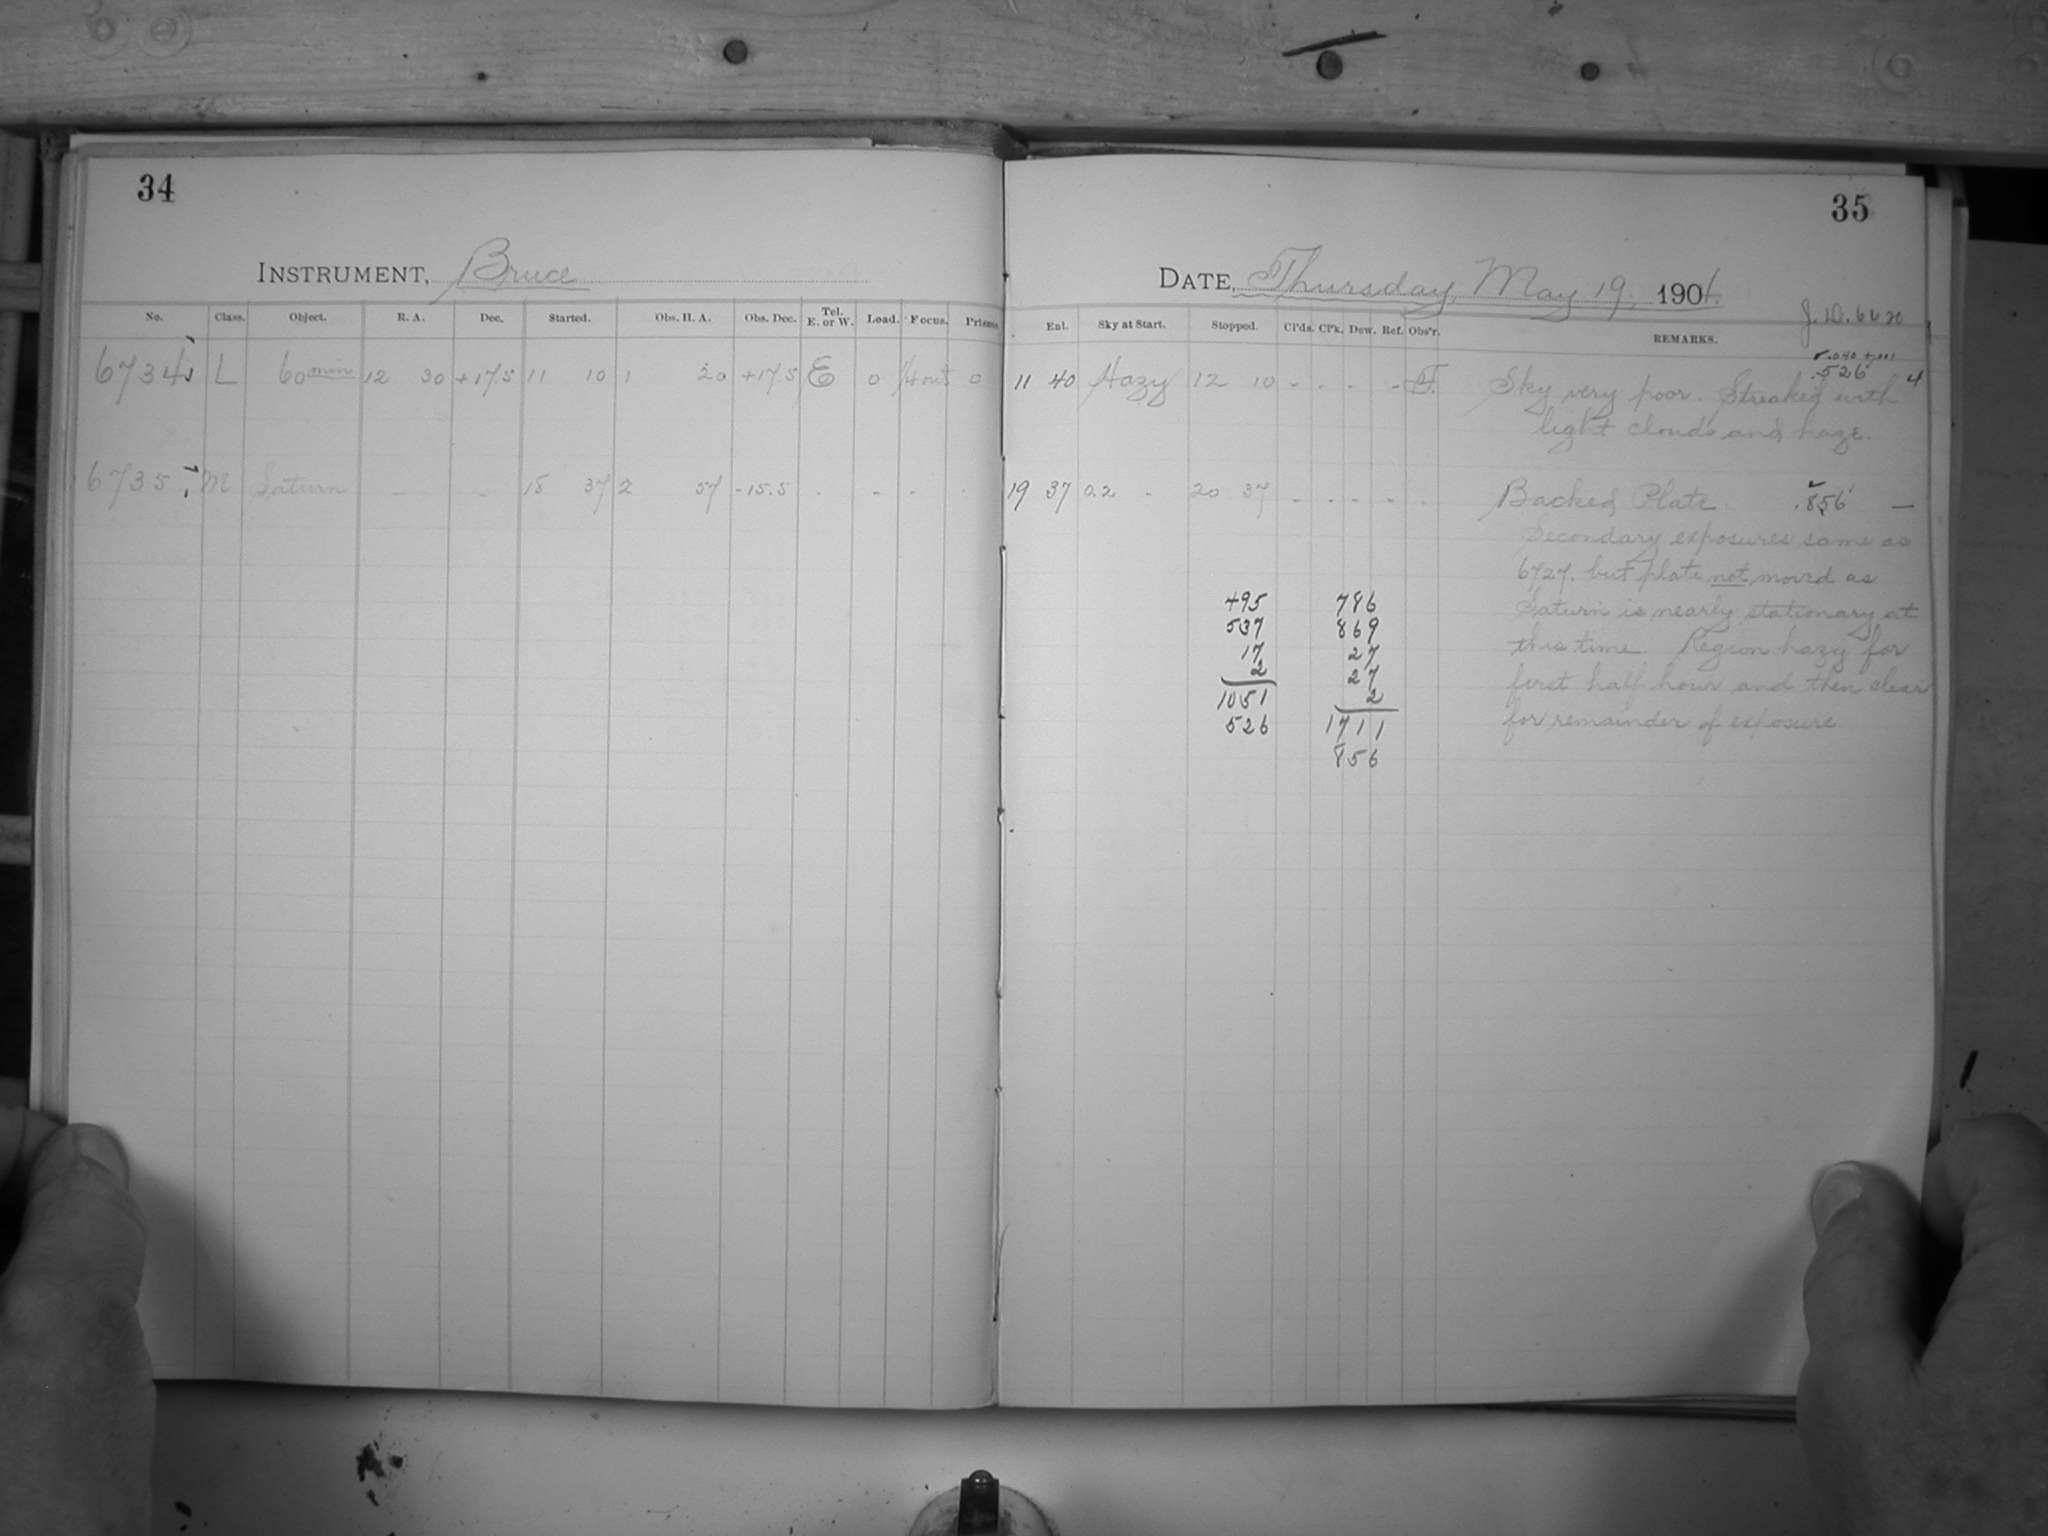 34
35
INSTRUMENT, Bruce
DATE, Thursday, May 19, 1904.
J.D. 6620
No. Class. Object. R. A. Dec. Started. Obs. H. A. Obs. Dec. Tel. E. or W. Load. Focus. Prisms.
Ent. Sky at Start. Stopped. Cl'ds. Cl'k. Dew. Ref. Obs'r. REMARKS.
6734 L 60 min 12 30 +17.5 11 10 1 20 +17.5 E 0 0
11 40 Hazy 12 10 - - - - F. Sky very poor. Streaked with
.526 4
light clouds and haze.
6735 M Saturn - - 18 37 2 57 -15.5 . - - .
19 37 0.2 - 20 37 - - - - . Backed Plate. .856 —
Secondary exposures same as
6727. but plate not moved as
Saturn is nearly stationary at
this time. Region hazy for
first half hour and then clear
for remainder of exposure
495
537
17
2
1051
526
786
869
27
27
2
1711
856